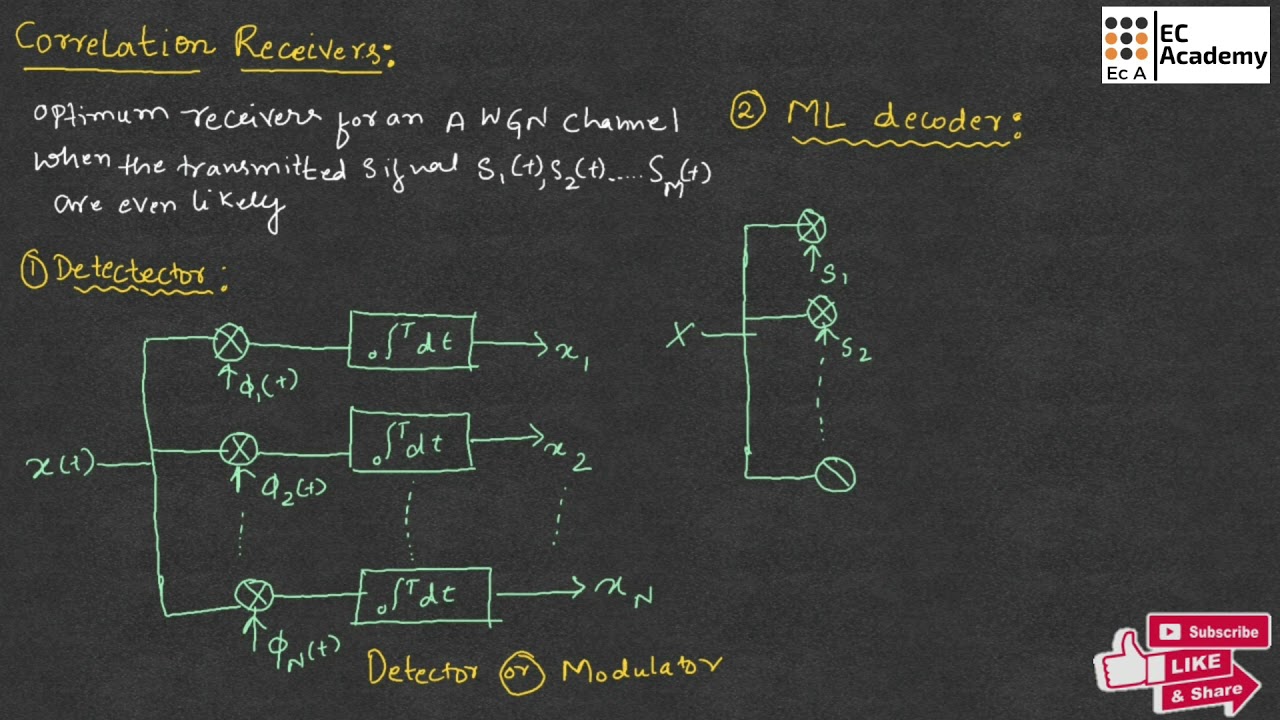 Correlation Receivers:
Optimum receivers for an AWGN channel
when the transmitted signal S₁(t), S₂(t).....S_M(t)
are even likely
① Detectector:
x(t)
ϕ₁(t)
₀∫ᵀdt
x₁
ϕ₂(t)
₀∫ᵀdt
x₂
ϕ_N(t)
₀∫ᵀdt
x_N
Detector or Modulator
② ML decoder:
X
S₁
S₂
EC
Academy
Ec A
Subscribe
LIKE
& Share